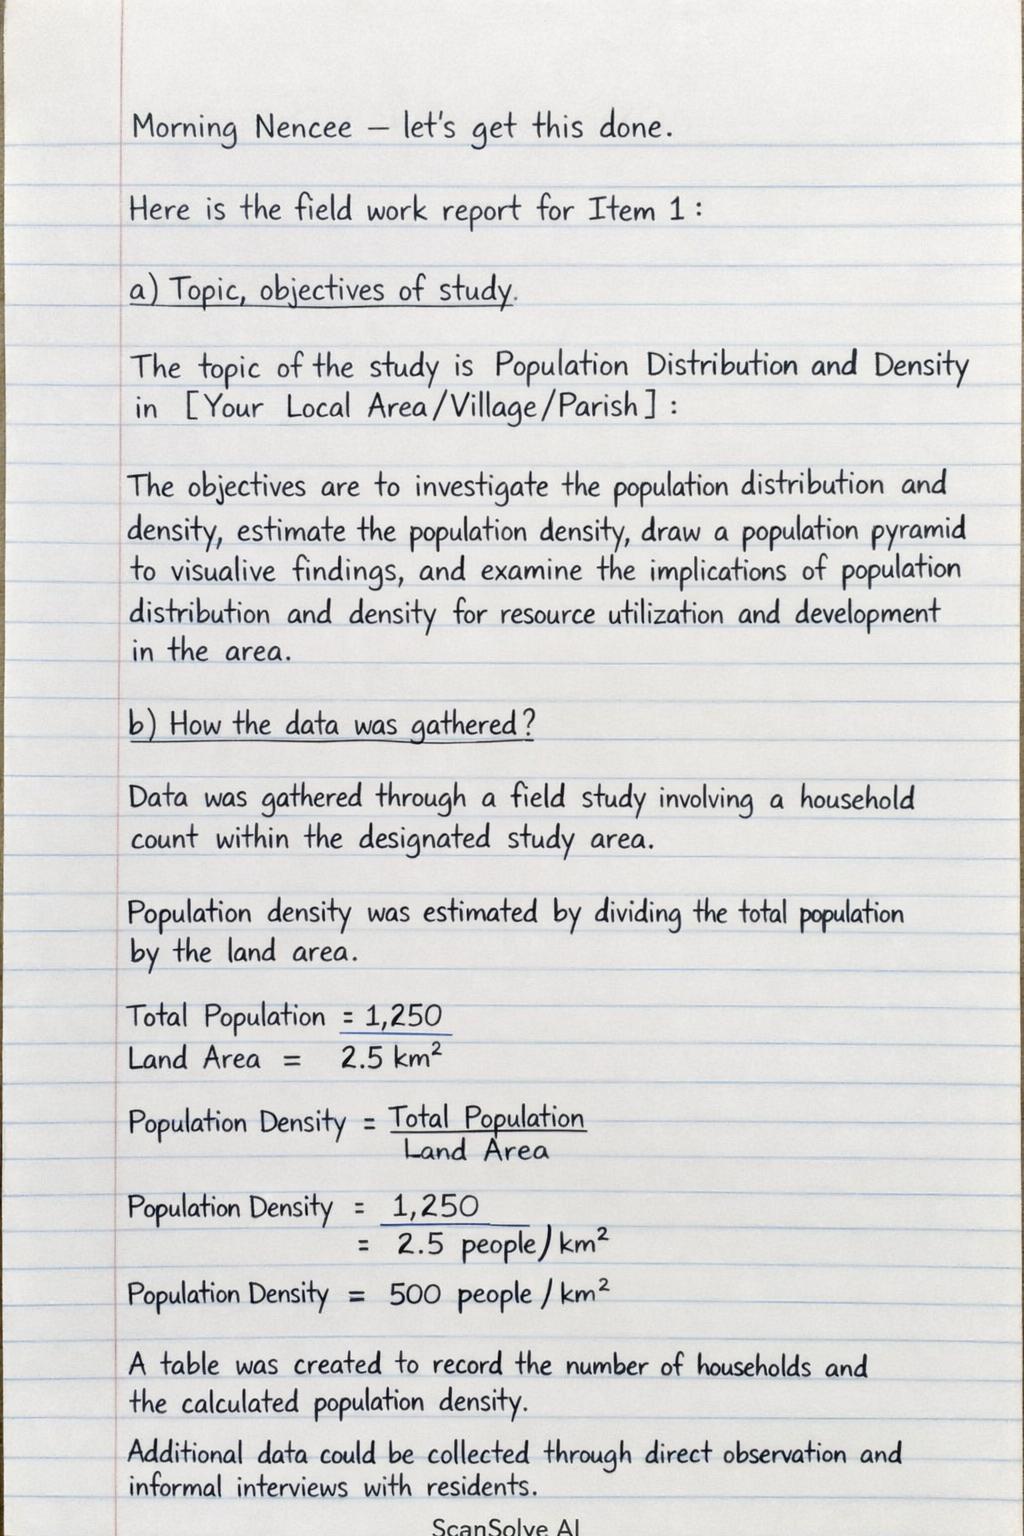 Morning Nencee — let's get this done.
Here is the field work report for Item 1:
a) Topic, objectives of study.
The topic of the study is Population Distribution and Density
in [Your Local Area/Village/Parish]:
The objectives are to investigate the population distribution and
density, estimate the population density, draw a population pyramid
to visualive findings, and examine the implications of population
distribution and density for resource utilization and development
in the area.
b) How the data was gathered?
Data was gathered through a field study involving a household
count within the designated study area.
Population density was estimated by dividing the total population
by the land area.
Total Population = 1,250
Land Area = 2.5 km²
Population Density = Total Population
Land Area
Population Density = 1,250
= 2.5 people/km²
Population Density = 500 people/km²
A table was created to record the number of households and
the calculated population density.
Additional data could be collected through direct observation and
informal interviews with residents.
ScanSolve AI